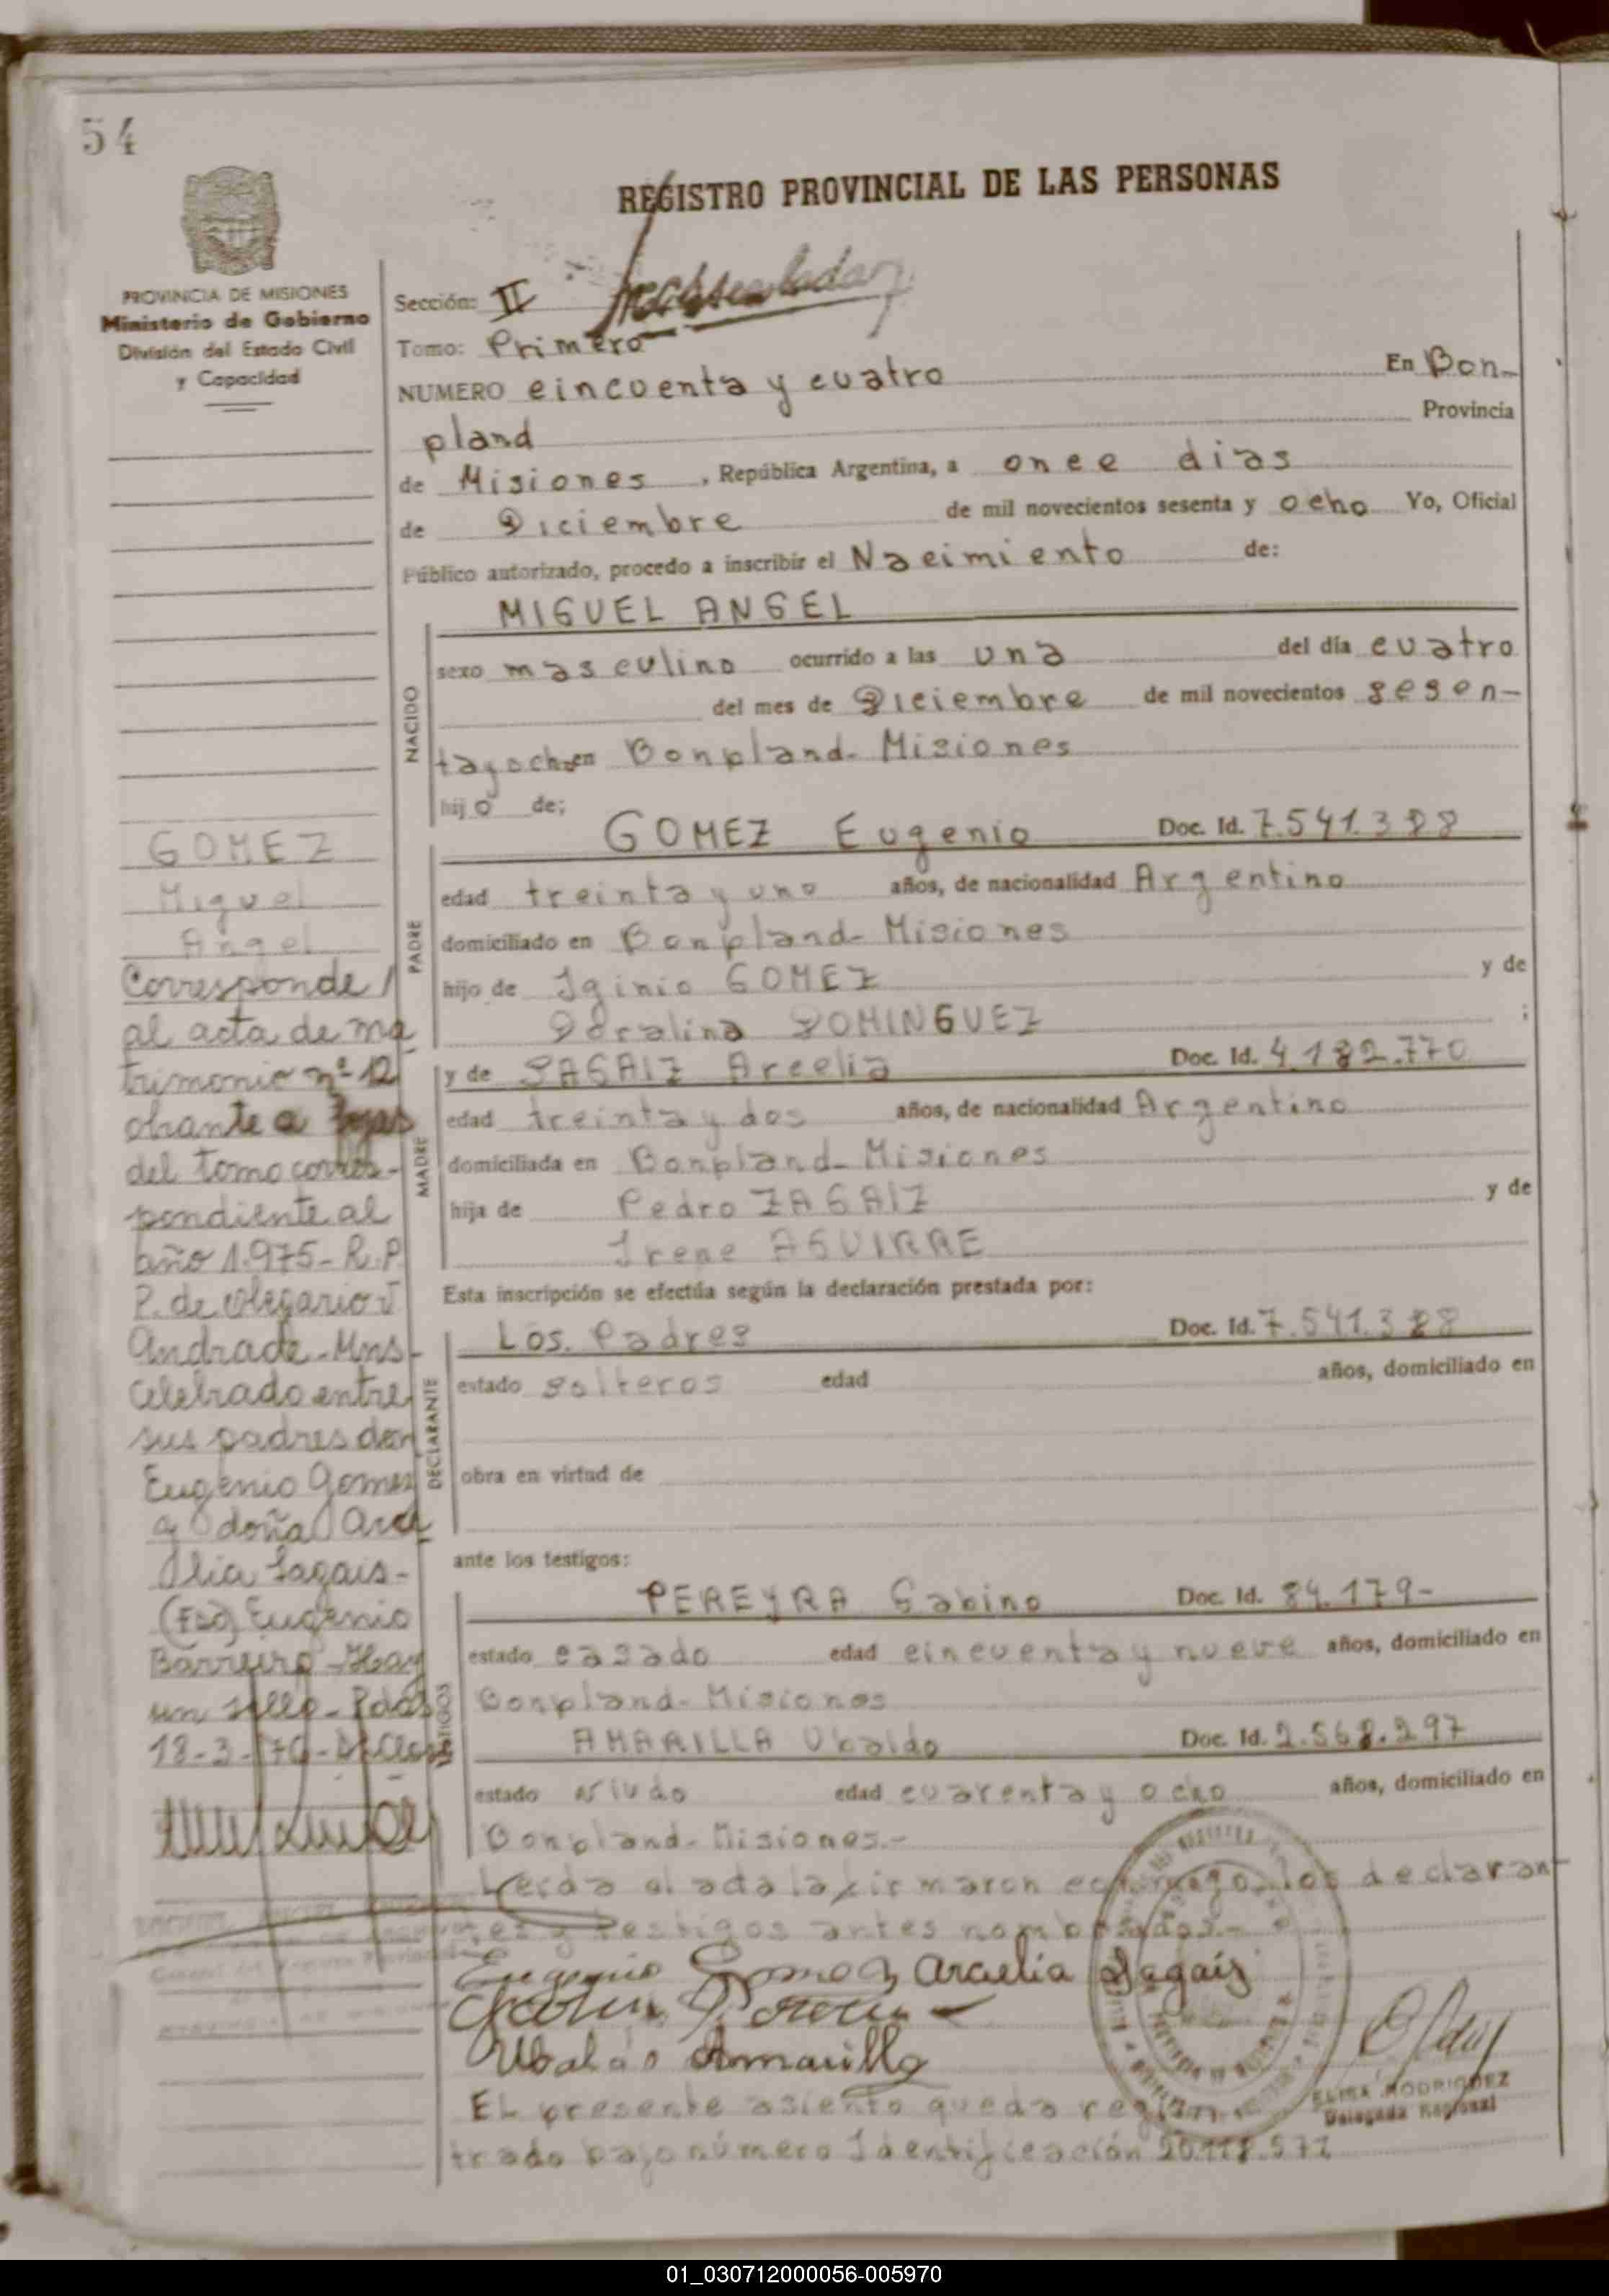 54
REGISTRO PROVINCIAL DE LAS PERSONAS
PROVINCIA DE MISIONES
Ministerio de Gobierno
División del Estado Civil
y Capacidad
Sección: II
Tomo: Primero
NUMERO cincuenta y cuatro En Bon-
pland Provincia
de Misiones , República Argentina, a once dias
de Diciembre de mil novecientos sesenta y ocho Yo, Oficial
Público autorizado, procedo a inscribir el Nacimiento de:
NACIDO
MIGUEL ANGEL
sexo masculino ocurrido a las una del día cuatro
del mes de Diciembre de mil novecientos sesen-
tayocho en Bonpland-Misiones
hijo de;
PADRE
GOMEZ Eugenio Doc. Id. 7.541.388
edad treinta y uno años, de nacionalidad Argentino
domiciliado en Bonpland-Misiones
hijo de Iginio GOMEZ y de
Doralina DOMINGUEZ ;
MADRE
y de SAGAIZ Arcelia Doc. Id. 4.182.770
edad treinta y dos años, de nacionalidad Argentino
domiciliada en Bonpland-Misiones
hija de Pedro ZAGAIZ y de
Irene AGUIRRE
Esta inscripción se efectúa según la declaración prestada por:
DECLARANTE
Los Padres Doc. Id. 7.541.388
estado solteros edad años, domiciliado en
obra en virtud de
ante los testigos:
TESTIGOS
PEREYRA Gabino Doc. Id. 84.179-
estado casado edad cincuenta y nueve años, domiciliado en
Bonpland-Misiones
AMARILLA Ubaldo Doc. Id. 2.568.297
estado viudo edad cuarenta y ocho años, domiciliado en
Bonpland-Misiones.-
Leida el acta la firmaron conmigo los declaran-
tes y testigos antes nombrados.-
Eugenio Gomez Arcelia Sagais
Ubaldo Amarilla
ELISA RODRIGUEZ
Delegada Regional
El presente asiento queda regis-
trado bajo número Identificación 20.118.571
GOMEZ
Miguel
Angel
Corresponde
al acta de ma
trimonio nº 12
obrante a fojas
del tomo corres-
pondiente al
año 1.975- R.P.
P. de Olegario V
Andrade-Mns-
Celebrado entre
sus padres don
Eugenio Gomez
y doña Arce
lia Sagais-
(Fdo) Eugenio
Barreiro-Hay
un sello-Pdas
18-3-76-
01_030712000056-005970